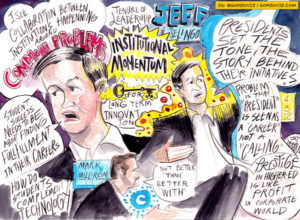 I SEE
COLLABORATION BETWEEN
INSTITUTIONS
HAPPENING
COMMON PROBLEMS
TENURE OF
LEADERSHIP
JEFF
SELINGO
INSTITUTIONAL
MOMENTUM
FOR
LONG TERM
INNOVATION
PRESIDENTS
SET THE
TONE, THE
STORY BEHIND
THEIR INITIATIVES
PROBLEM
WHEN
"PRESIDENT"
IS SEEN AS
A CAREER
NOT A
CALLING
PRESTIGE
IN HIGHER ED
IS LIKE
PROFIT
IN CORPORATE
WORLD
STUDENT
SUCCESS
NEEDS TO BE
MORE
FINDING
FULFILLMENT
IN THEIR
CAREERS
HOW DO
STUDENTS
COMPLEMENT
TECHNOLOGY
MARK
MILLIRON
NOT BETTER
THAN
BETTER
WITH
C